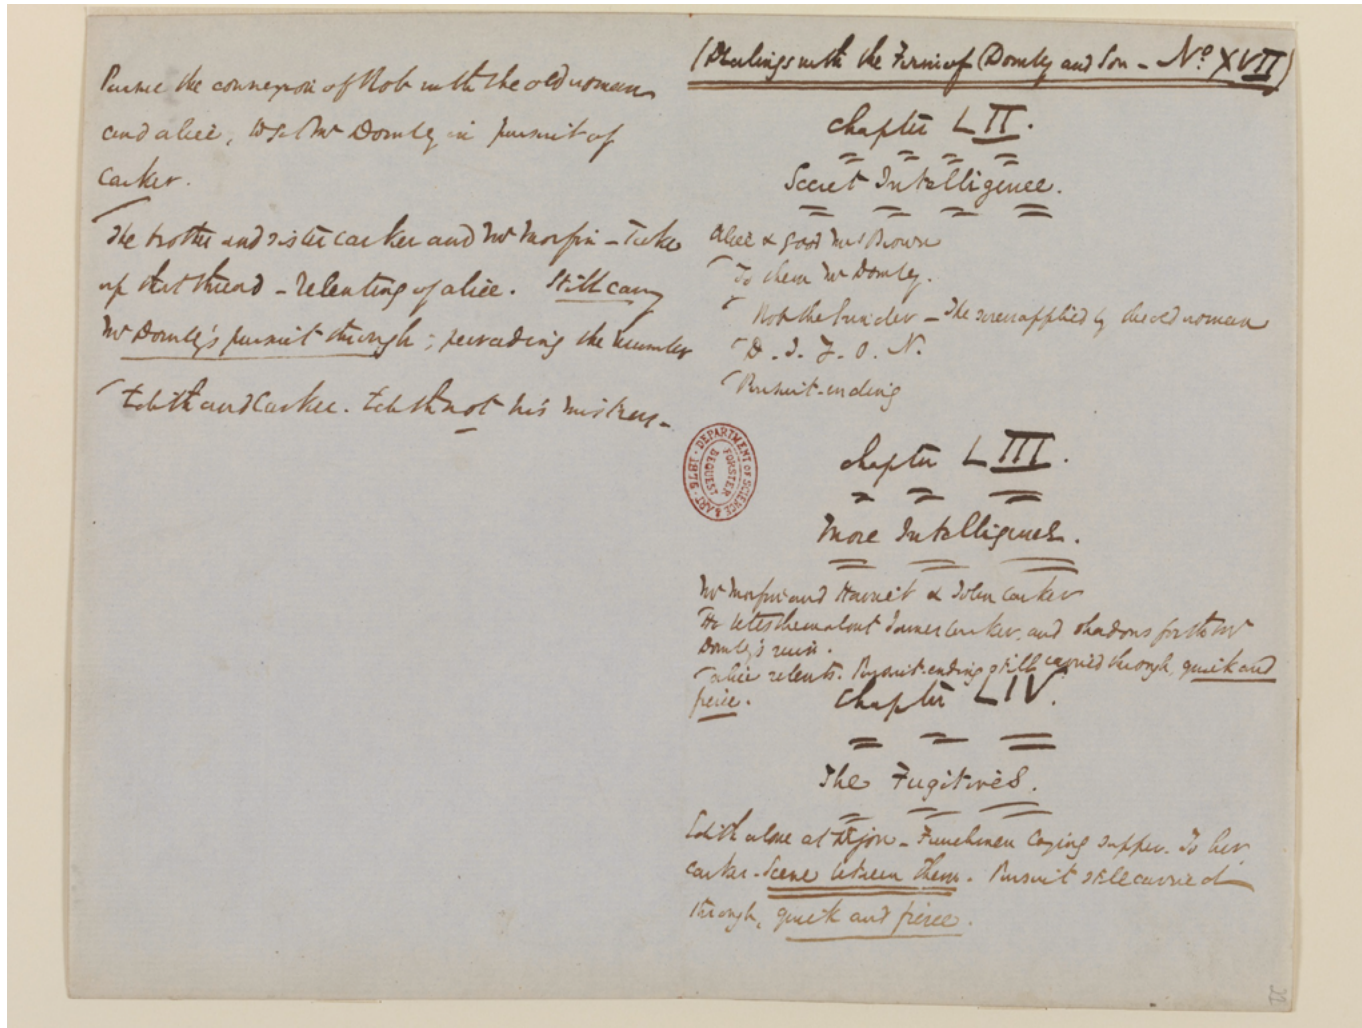 Pursue the connexion of Rob with the old woman
and alice, to set Mr Dombey in pursuit of
Carker.
The brother and sister Carker and Mr Morfin - Take
up that thread - relenting of alice. Still carry
Mr Dombey's pursuit through; pervading the number
Edith and Carker. Edith not his mistress -
(Dealings with the Firm of Dombey and Son - No. XVII)
Chapter LII.
Secret Intelligence.
Alice & Good Mrs Brown
To them Mr Dombey.
Rob the Grinder - The screw applied by the old woman
D. I. J. O. N.
Pursuit-ending
chapter LIII.
More Intelligence.
Mr Morfin and Harriet & John Carker
He tells them about James Carker, and shadows forth Mr
Dombey's ruin.
Alice relents. Pursuit-ending still carried through, quick and
fierce.
Chapter LIV.
The Fugitives.
Edith alone at Dijon - Frenchmen laying supper. To her,
Carker - Scene between them. Pursuit still carried
through, quick and fierce.
DEPARTMENT OF SCIENCE & ART · 1876 ·
FORSTER
BEQUEST